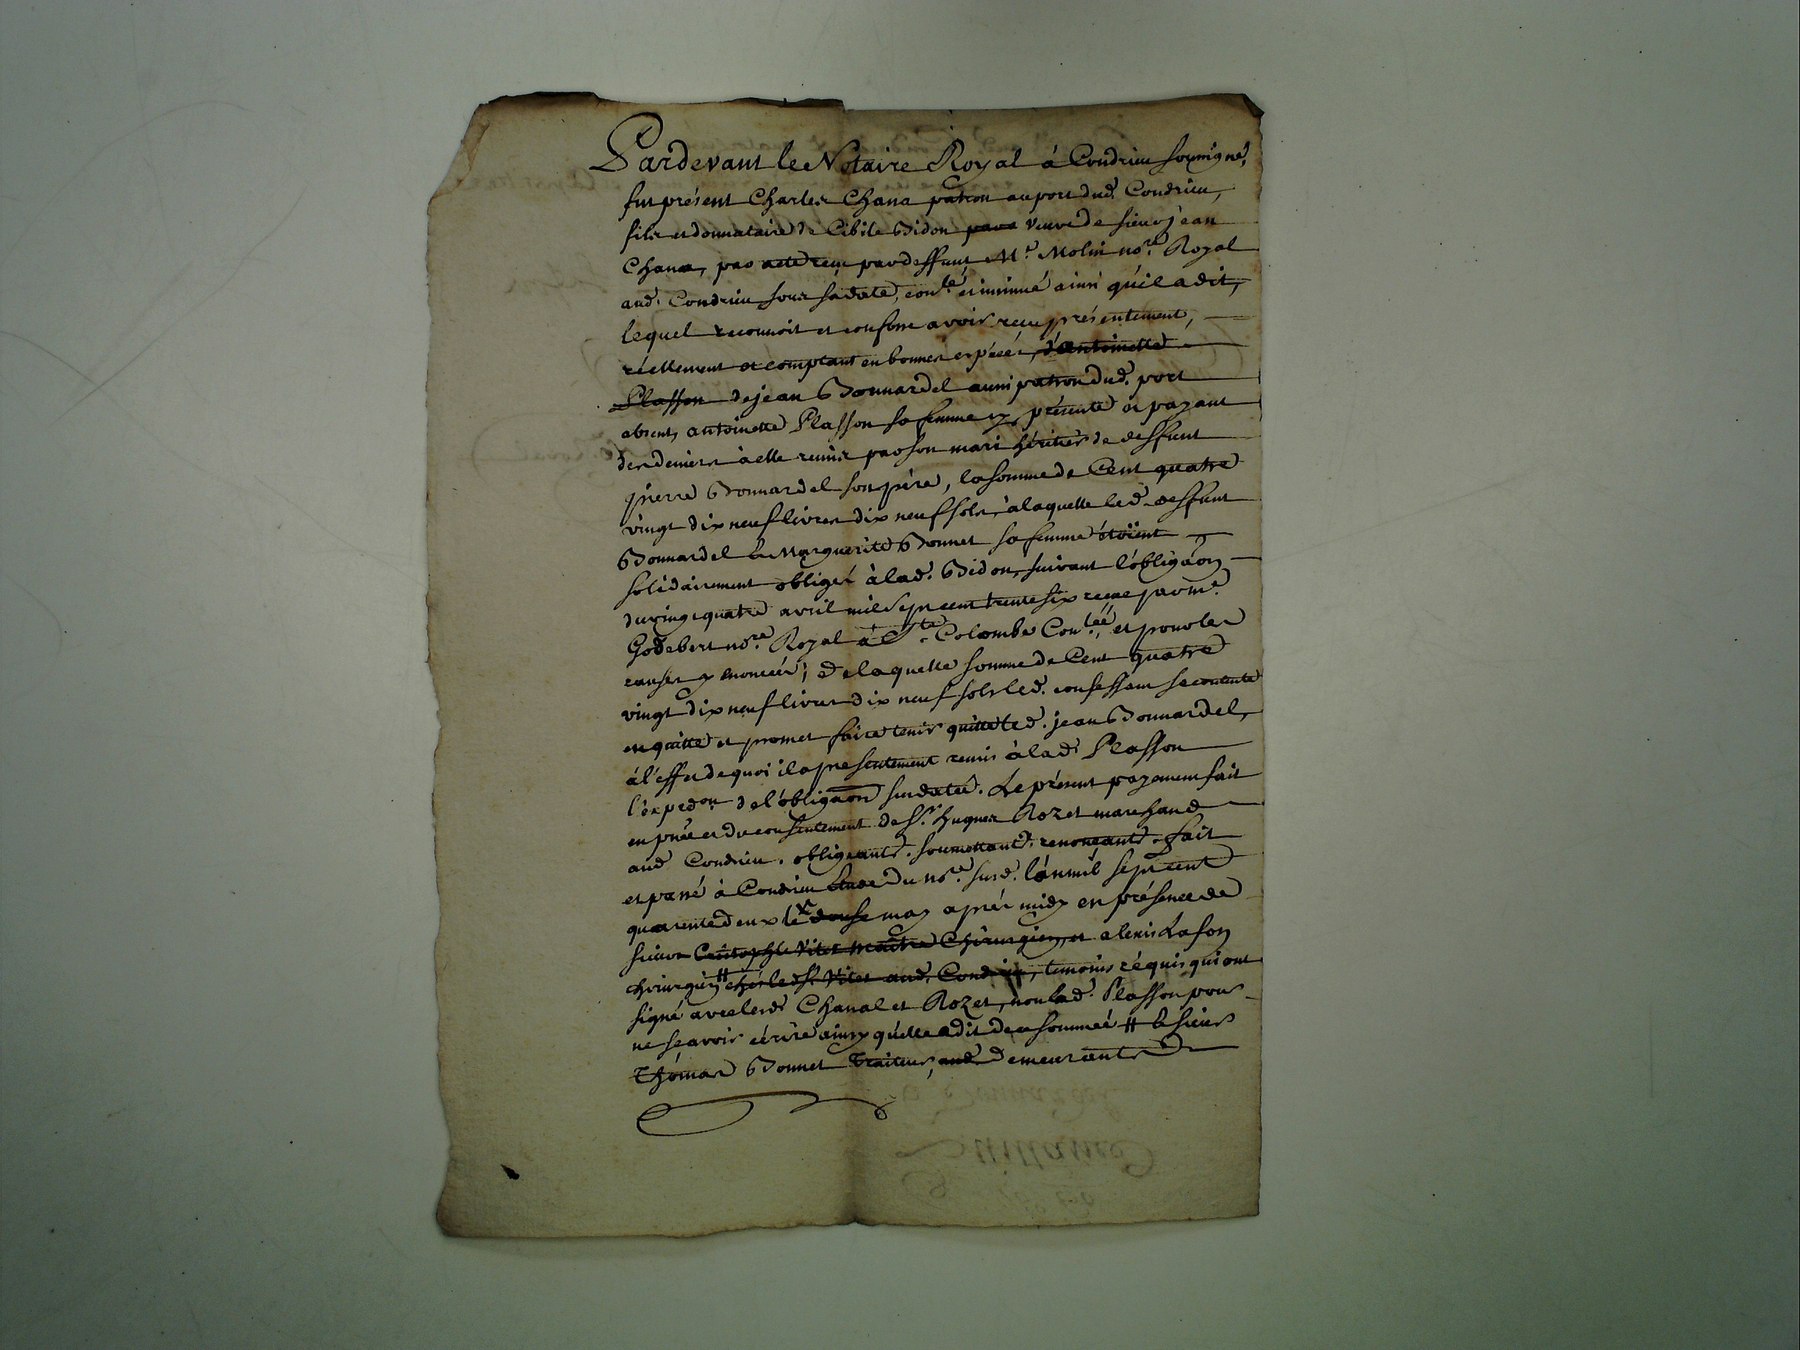 Pardevant le Notaire Royal à Condrieu soussigné,
fut présent Charles Chana patron au port dud. Condrieu,
fils et donnataire de Cibile Bidon veuve de sieur jean
Chana, par acte reçu par deffunt Me. Molin nore. Royal
aud. Condrieu sous sa date, conlé. et insinué ainsi qu'il a dit,
lequel reconnoit et confesse avoir reçu présentement,
réellement et comptant en bonnes espèces, d'antoinette
Plasson de jean Bonnardel aussi patron dud. port
absent, antoinette Plasson sa femme ÿ présente et payant
des deniers à elle remis par son mari héritier de deffunt
pierre Bonnardel son père, la somme de Cent quatre
vingt dix neuf livres dix neuf sols, à laquelle led. deffunt
Bonnardel & Marguerite Bonnet sa femme étoient
solidairement obligés à lad. Bidon, suivant l'obligaon
du vingt quatre avril mil sept cent trente six reçue par me.
Godebert nore. Royal à Ste. Colombe Conlée, et pour les
causes y énoncées; de laquelle somme de Cent quatre
vingt dix neuf livres dix neuf sols led. confessant se contente
en quitte et promet faire tenir quitte led. jean Bonnardel,
à l'effet de quoi il a presentement remis à lad. Plasson
l'expedon. de l'obligaon susdatée. Le présent payement fait
en pnce et du consentement de Sr. hugues Rozet marchand
aud. Condrieu. obligeants. soumettants. renonçants. fait
et passé à Condrieu étude du nore. susd. l'an mil sept cent
quarente deux le douse may après midy en présence de
sieur Cristophle Vitet maître Chirurgien, et alexis Lafon
chirurgien # chés led. Sr. Vitet aud. Condrieu, temoins réquis qui ont
signé avec lesd. Chanal et Rozet, non lad. Plasson pour
ne sçavoir écrire ainsy qu'elle a dit de ce sommée # le sieur
Thomas Bonnet Traiteur, aud demeurants